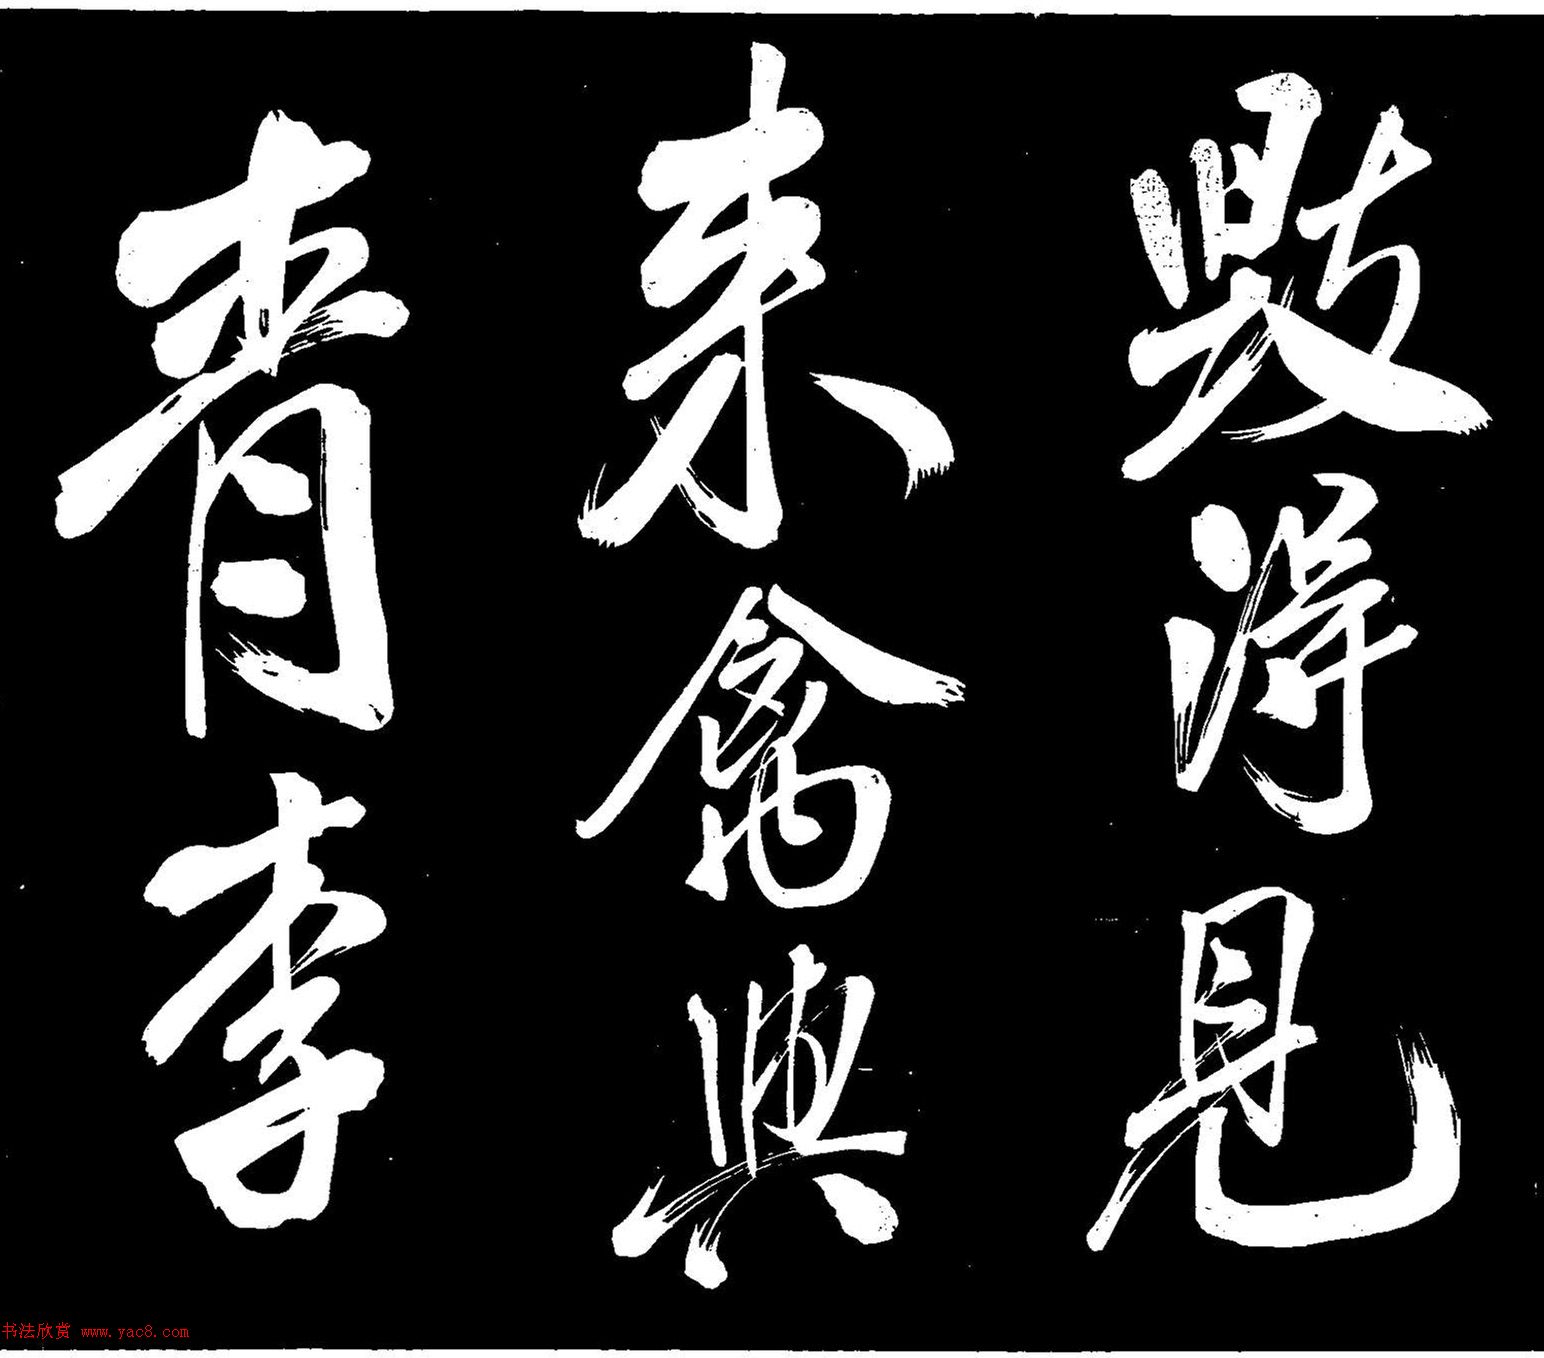 得見
來禽與
青李
书法欣赏 www.yac8.com